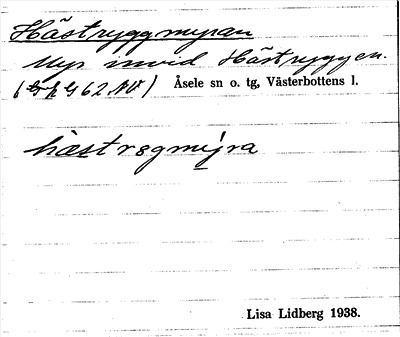 Hästryggmyran
Myr invid Hästryggen.
(GK 62 NV) Åsele sn o. tg, Västerbottens l.
hæstrøgmýra
Lisa Lidberg 1938.